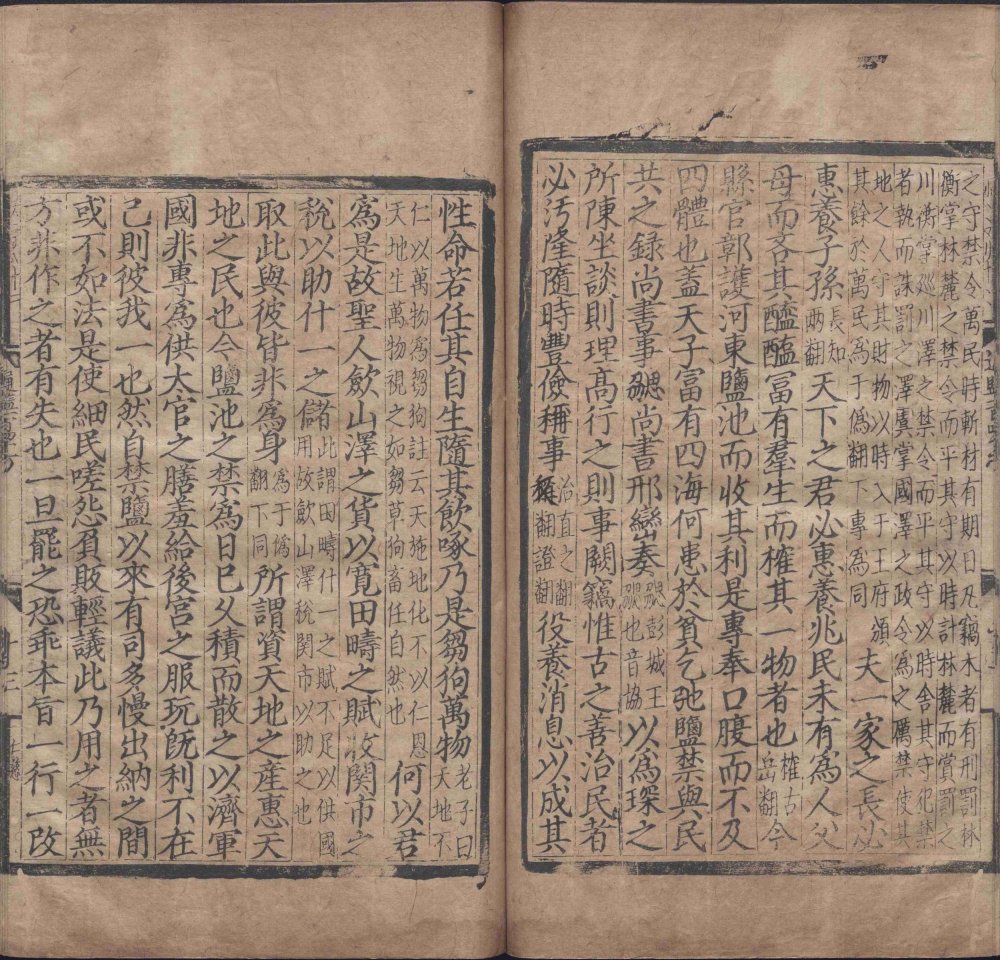 之守禁令萬民時斬材有期日凡竊木者有刑罰林
衡掌林麓之禁令而平其守以時計林麓而賞罰之
川衡掌巡川澤之禁令而平其守以時舍其守犯禁
者執而誅罰之澤虞掌國澤之政令爲之厲禁使其
地之人守其財物以時入于王府頒
其餘於萬民爲于僞翻下專爲同夫一家之長必
惠養子孫長知兩翻天下之君必惠養兆民未有爲人父
母而吝其醯醢冨有羣生而榷其一物者也榷古岳翻今
縣官鄣護河東鹽池而收其利是專奉口腹而不及
四體也蓋天子富有四海何患於貧乞弛鹽禁與民
共之録尚書事勰尚書邢巒奏勰彭城王勰也音協以爲琛之
所陳坐談則理高行之則事闕竊惟古之善治民者
必汚隆隨時豐儉稱事治直之翻證翻役養消息以成其
性命若任其自生隨其飲啄乃是芻狗萬物老子曰天地不
仁以萬物爲芻狗註云天施地化不以仁恩
天地生萬物視之如芻草狗畜任自然也何以君
爲是故聖人歛山澤之貨以寬田疇之賦收関市之
稅以助什一之儲此謂田疇什一之賦不足以供國用故歛山澤稅関市以助之也
取此與彼皆非爲身爲于僞翻下同所謂資天地之產惠天
地之民也今鹽池之禁爲日已久積而散之以濟軍
國非專爲供太官之膳羞給後宮之服玩旣利不在
己則彼我一也然自禁鹽以來有司多慢出納之間
或不如法是使細民嗟怨負販輕議此乃用之者無
方非作之者有失也一旦罷之恐乖本旨一行一改